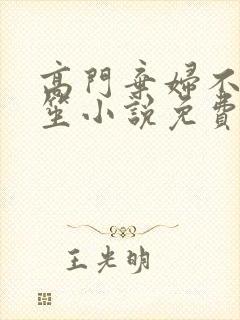 高門棄婦不
笙小說免費
王光明